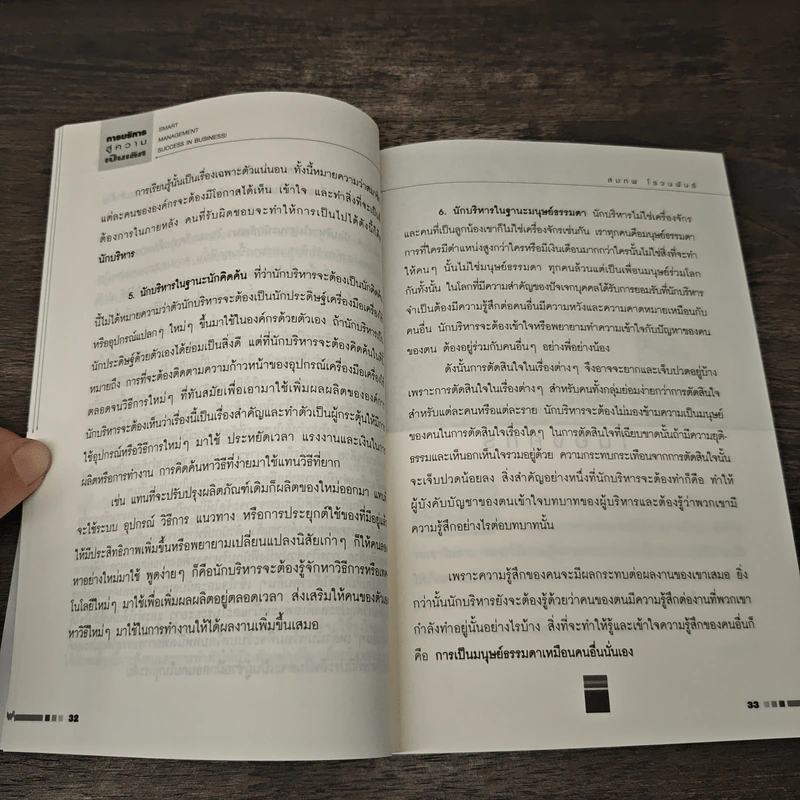 การบริหาร
สู่ความ
เป็นเลิศ
SMART
MANAGEMENT
SUCCESS IN BUSINESS!
การเรียนรู้นั้นเป็นเรื่องเฉพาะตัวแน่นอน ทั้งนี้หมายความว่า
แต่ละคนขององค์กรจะต้องมีโอกาสได้เห็น เข้าใจ และทำสิ่งที่จะเป็น
ต้องการในภายหลัง คนที่รับผิดชอบจะทำให้การเป็นไปได้ดังนี้ก็
นักบริหาร
5. นักบริหารในฐานะนักคิดค้น ที่ว่านักบริหารจะต้องเป็นนักคิดค้น
นี้ไม่ได้หมายความว่าตัวนักบริหารจะต้องเป็นนักประดิษฐ์เครื่องมือเครื่อง
หรืออุปกรณ์แปลกๆ ใหม่ๆ ขึ้นมาใช้ในองค์กรด้วยตัวเอง ถ้านักบริหาร
นักประดิษฐ์ด้วยตัวเองได้ย่อมเป็นสิ่งดี แต่ที่นักบริหารจะต้องคิดค้นใน
หมายถึง การที่จะต้องติดตามความก้าวหน้าของอุปกรณ์เครื่องมือเครื่อง
ตลอดจนวิธีการใหม่ๆ ที่ทันสมัยเพื่อเอามาใช้เพิ่มผลผลิตขององค์กร
นักบริหารจะต้องเห็นว่าเรื่องนี้เป็นเรื่องสำคัญและทำตัวเป็นผู้กระตุ้นให้มีการ
ใช้อุปกรณ์หรือวิธีการใหม่ๆ มาใช้ ประหยัดเวลา แรงงานและเงินใน
ผลิตหรือการทำงาน การคิดค้นหาวิธีที่ง่ายมาใช้แทนวิธีที่ยาก
เช่น แทนที่จะปรับปรุงผลิตภัณฑ์เดิมก็ผลิตของใหม่ออกมา แทนที่
จะใช้ระบบ อุปกรณ์ วิธีการ แนวทาง หรือการประยุกต์ใช้ของที่มีอยู่แล้ว
ให้มีประสิทธิภาพเพิ่มขึ้นหรือพยายามเปลี่ยนแปลงนิสัยเก่าๆ ก็ให้คน
หาอย่างใหม่มาใช้ พูดง่ายๆ ก็คือนักบริหารจะต้องรู้จักหาวิธีการหรือเทค
โนโลยีใหม่ๆ มาใช้เพื่อเพิ่มผลผลิตอยู่ตลอดเวลา ส่งเสริมให้คนของตัวเอง
หาวิธีใหม่ๆ มาใช้ในการทำงานให้ได้ผลงานเพิ่มขึ้นเสมอ
32
สมภพ โรจนพันธ์
6. นักบริหารในฐานะมนุษย์ธรรมดา นักบริหารไม่ใช่เครื่องจักร
และคนที่เป็นลูกน้องเขาก็ไม่ใช่เครื่องจักรเช่นกัน เราทุกคนคือมนุษย์ธรรมดา
การที่ใครมีตำแหน่งสูงกว่าใครหรือมีเงินเดือนมากกว่าใครนั้นไม่ใช่สิ่งที่จะทำ
ให้คนๆ นั้นไม่ใช่มนุษย์ธรรมดา ทุกคนล้วนแต่เป็นเพื่อนมนุษย์ร่วมโลก
กันทั้งนั้น ในโลกที่มีความสำคัญของปัจเจกบุคคลได้รับการยอมรับที่นักบริหาร
จำเป็นต้องมีความรู้สึกต่อคนอื่นมีความหวังและความคาดหมายเหมือนกับ
คนอื่น นักบริหารจะต้องเข้าใจหรือพยายามทำความเข้าใจกับปัญหาของคน
ของตน ต้องอยู่ร่วมกับคนอื่นๆ อย่างพี่อย่างน้อง
ดังนั้นการตัดสินใจในเรื่องต่างๆ จึงอาจจะยากและเจ็บปวดอยู่บ้าง
เพราะการตัดสินใจในเรื่องต่างๆ สำหรับคนทั้งกลุ่มย่อมง่ายกว่าการตัดสินใจ
สำหรับแต่ละคนหรือแต่ละราย นักบริหารจะต้องไม่มองข้ามความเป็นมนุษย์
ของคนในการตัดสินใจเรื่องใดๆ ในการตัดสินใจที่เฉียบขาดนั้นถ้ามีความยุติ-
ธรรมและเห็นอกเห็นใจรวมอยู่ด้วย ความกระทบกระเทือนจากการตัดสินใจนั้น
จะเจ็บปวดน้อยลง สิ่งสำคัญอย่างหนึ่งที่นักบริหารจะต้องทำก็คือ ทำให้
ผู้บังคับบัญชาของตนเข้าใจบทบาทของผู้บริหารและต้องรู้ว่าพวกเขามี
ความรู้สึกอย่างไรต่อบทบาทนั้น
เพราะความรู้สึกของคนจะมีผลกระทบต่อผลงานของเขาเสมอ ยิ่ง
กว่านั้นนักบริหารยังจะต้องรู้ด้วยว่าคนของตนมีความรู้สึกต่องานที่พวกเขา
กำลังทำอยู่นั้นอย่างไรบ้าง สิ่งที่จะทำให้รู้และเข้าใจความรู้สึกของคนอื่นก็
คือ การเป็นมนุษย์ธรรมดาเหมือนคนอื่นนั่นเอง
33